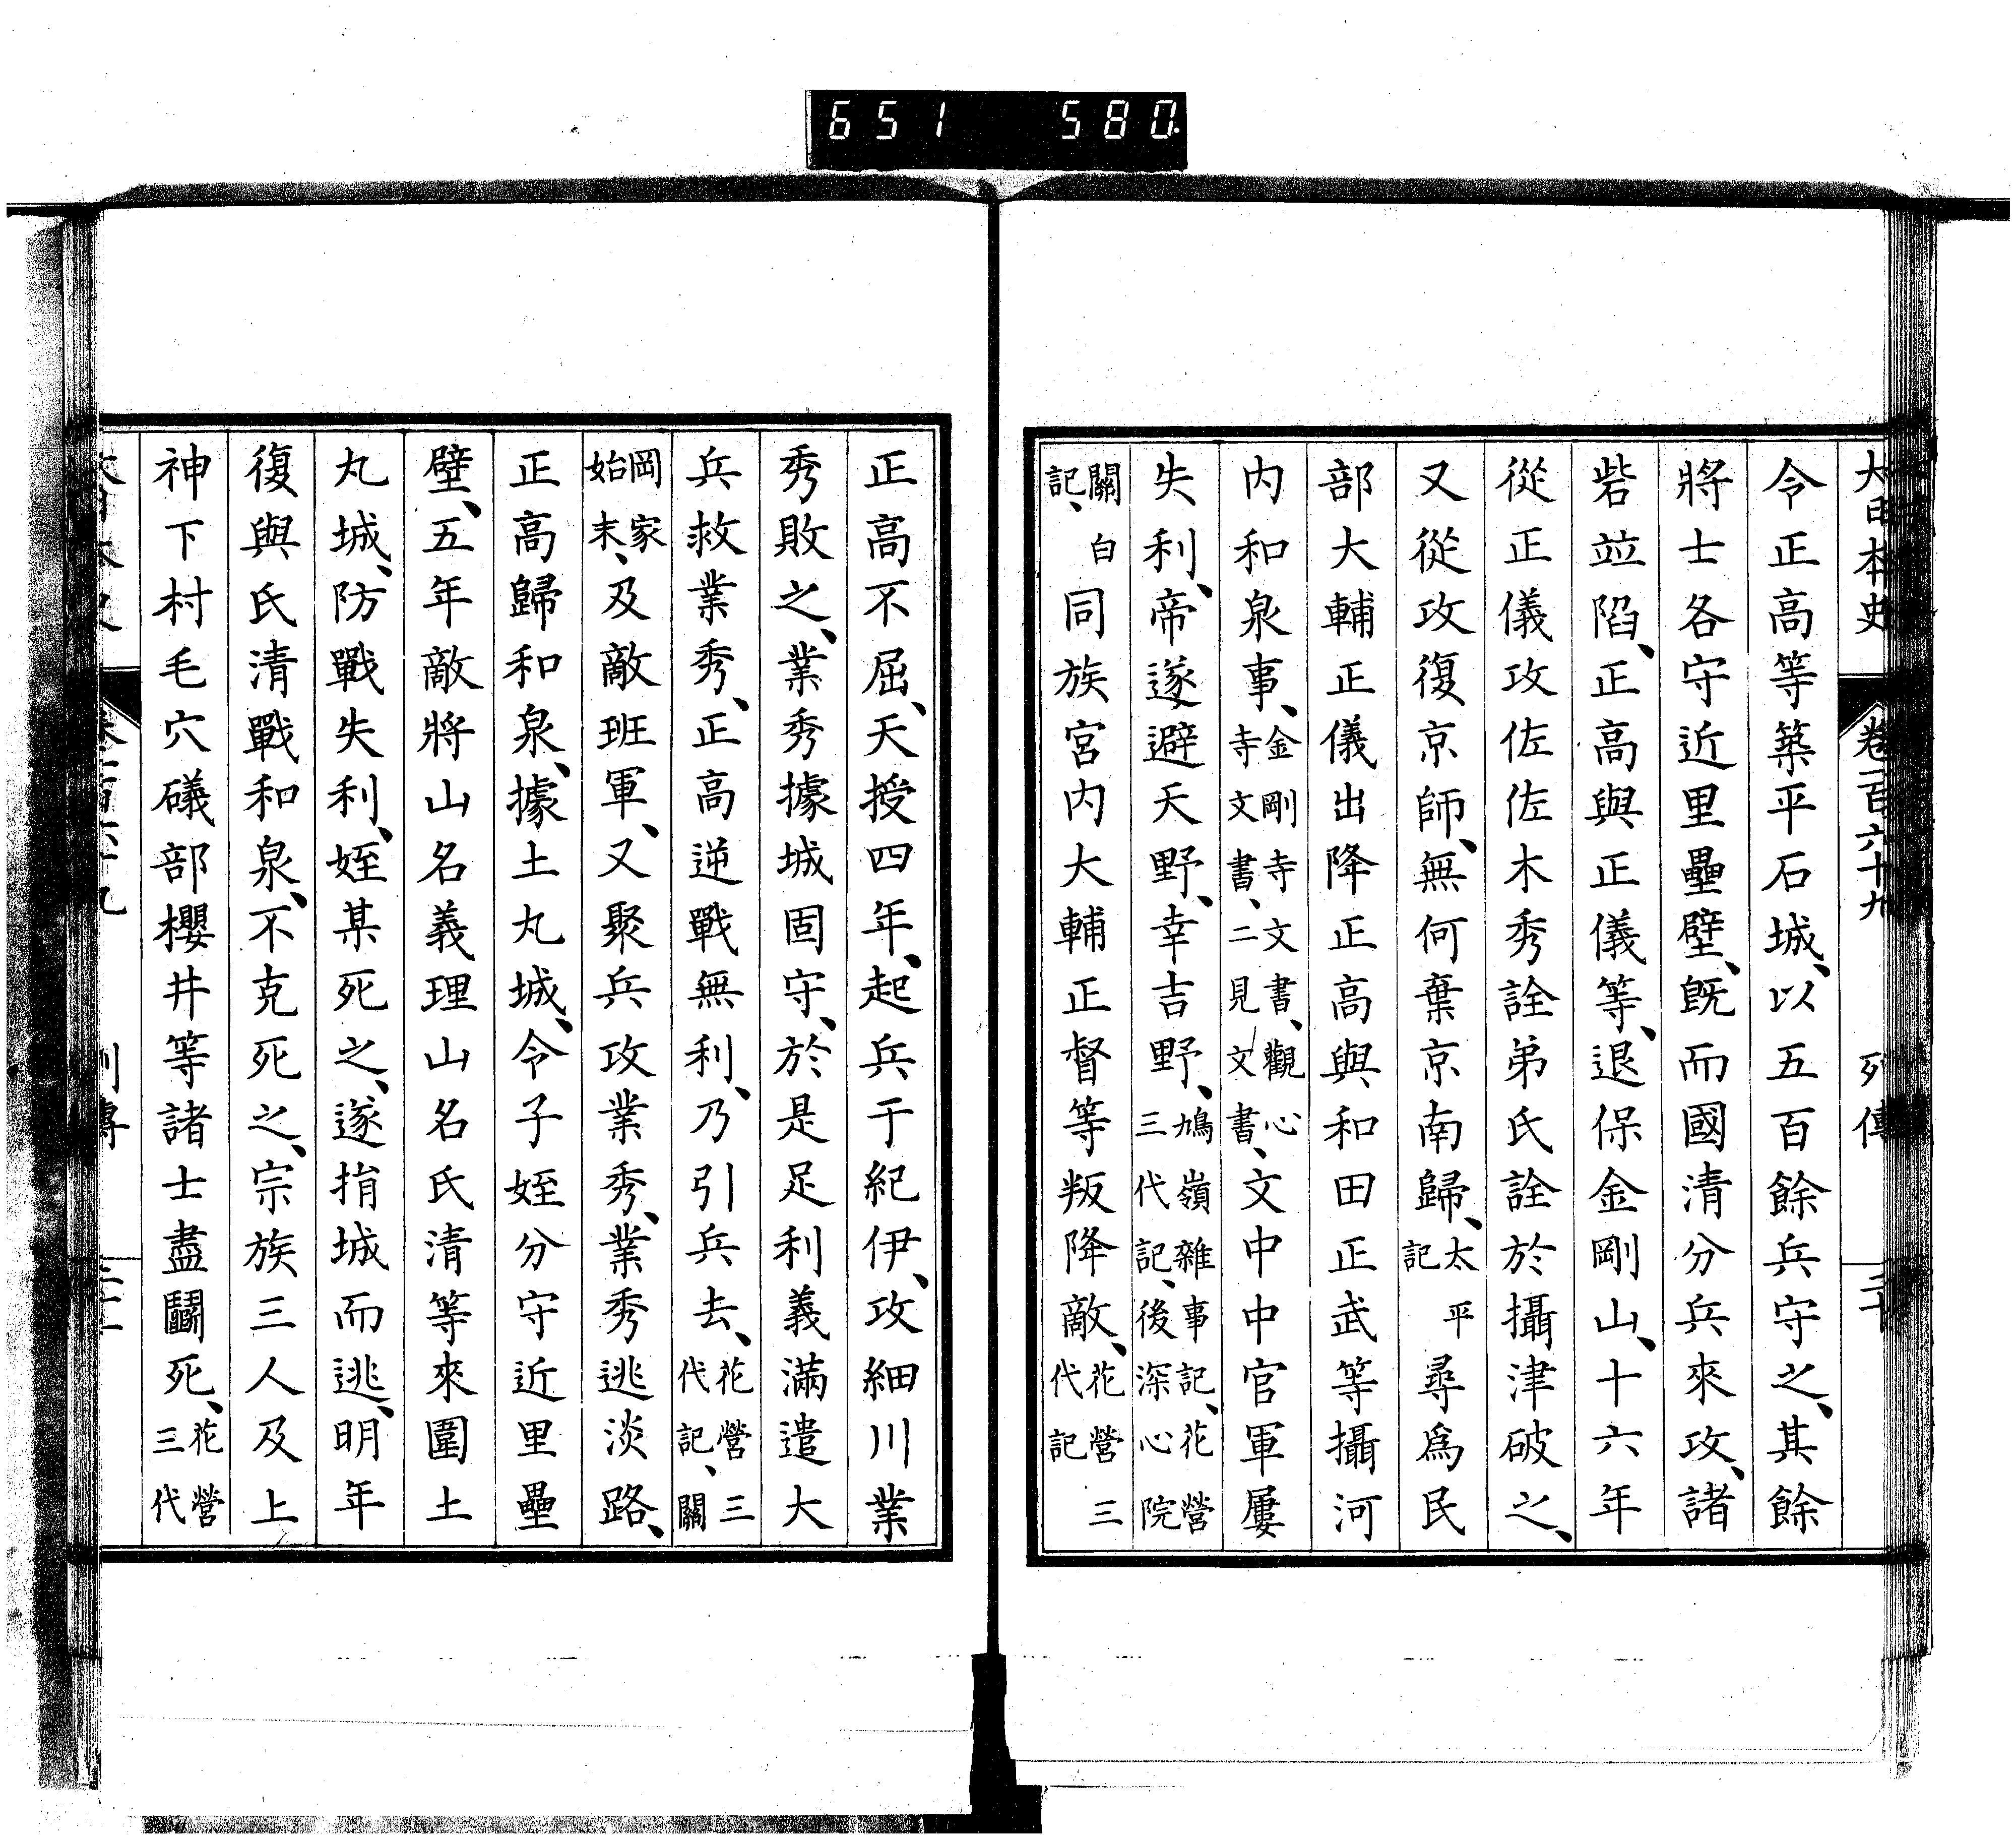 大日本史 卷一百六十九 列傳 二十
令正高等築平石城、以五百餘兵守之、其餘
將士各守近里壘壁、既而國清分兵來攻、諸
砦竝陷、正高與正儀等、退保金剛山、十六年
從正儀攻佐佐木秀詮弟氏詮於攝津破之、
又從攻復京師、無何棄京南歸、太平記尋爲民
部大輔正儀出降正高與和田正武等攝河
內和泉事、金剛寺文書、觀心寺文書、二見文書、文中中官軍屢
失利、帝遂避天野、幸吉野、鳩嶺雜事記、花營三代記、後深心院
關白記、同族宮內大輔正督等叛降敵、花營三代記
正高不屈、天授四年、起兵于紀伊、攻細川業
秀敗之、業秀據城固守、於是足利義滿遣大
兵救業秀、正高逆戰無利、乃引兵去、花營三代記、關
岡家始末、及敵班軍、又聚兵攻業秀、業秀逃淡路、
正高歸和泉、據土丸城、令子姪分守近里壘
壁、五年敵將山名義理山名氏清等來圍土
丸城、防戰失利、姪某死之、遂捐城而逃、明年
復與氏清戰和泉、不克死之、宗族三人及上
神下村毛穴礒部櫻井等諸士盡鬪死、花營三代
651 580